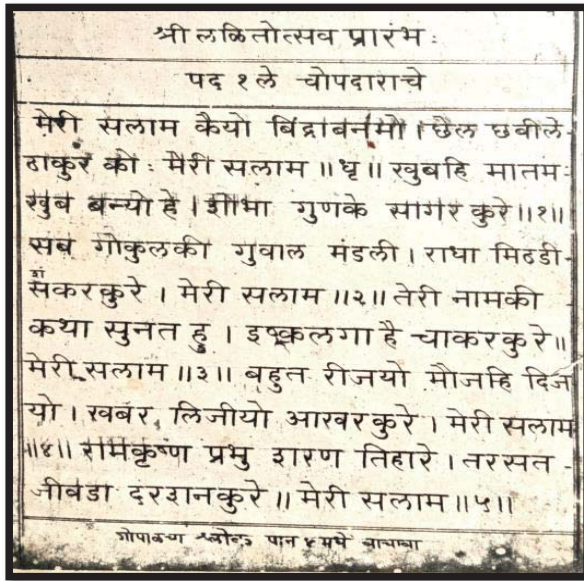 श्री लळितोत्सव प्रारंभः
पद १ ले चोपदाराचे
मेरी सलाम कैयो बिंद्राबनमो । छैल छबीले-
ठाकुर को : मेरी सलाम ॥धृ॥ खुबहि मातम-
खुब बन्यो हे । शोभा गुणके सागर कुरे ॥१॥
सब गोकुलकी गुवाल मंडली । राधा मिठडी-
शं
सकरकुरे । मेरी सलाम ॥२॥ तेरी नामकी
कथा सुनत हु । इष्कलगा है चाकरकुरे॥
मेरी सलाम ॥३॥ बहुत रीजयो मौजहि दिज
यो । खबर लिजीयो आखरकुरे । मेरी सलाम
॥४॥ रामकृष्ण प्रभु शरण तिहारे । तरसत -
जीवडा दरशनकुरे ॥ मेरी सलाम ॥५॥
पान ४ मधे वाचावा